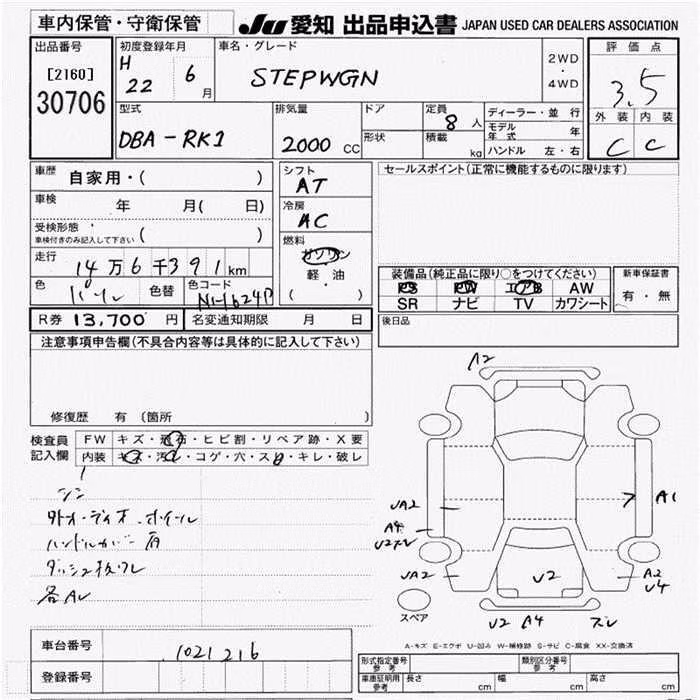 車内保管・守衛保管
JU 愛知 出品申込書 JAPAN USED CAR DEALERS ASSOCIATION
出品番号
[2160]
30706
初度登録年月
H 22 6 月
車名・グレード
STEPWGN
2WD
・
4WD
評価点
3.5
外装 内装
C C
型式
DBA-RK1
排気量
2000 CC
ドア
形状
定員
8 人
積載
kg
ディーラー・並行
モデル年式 年
ハンドル 左・右
車歴 自家用・( )
車検 年 月( 日)
受検形態
車検付きのみ記入して下さい ( )
走行 14万6千391km
色 パール 色替
色コード NH-624P
シフト
AT
冷房
AC
燃料
ガソリン
軽・油
( ・ )
セールスポイント(正常に機能するものに限ります)
装備品(純正品に限り○をつけてください)
PS PW エアB AW
SR ナビ TV カワシート
新車保証書
有・無
R券 13,700 円 名変通知期限 月 日
後日品
注意事項申告欄(不具合内容等は具体的に記入して下さい)
修復歴 有 (箇所
検査員
記入欄
FW キズ・飛石・ヒビ割・リペア跡・X要
内装 キズ・汚レ・コゲ・穴・スレ・キレ・破レ
ハンドルカバー
A2
UA2
A4
U2
UA2
A1
A2
U4
U2
U2 A4 ズレ
スペア
A-キズ E-エクボ U-凹み W-補修跡 S-サビ C-腐食 XX-交換済
車台番号 1021216
登録番号
形式指定番号
参考
類別区分番号
参考
車庫証明用
参考
長さ cm 幅 cm 高さ cm